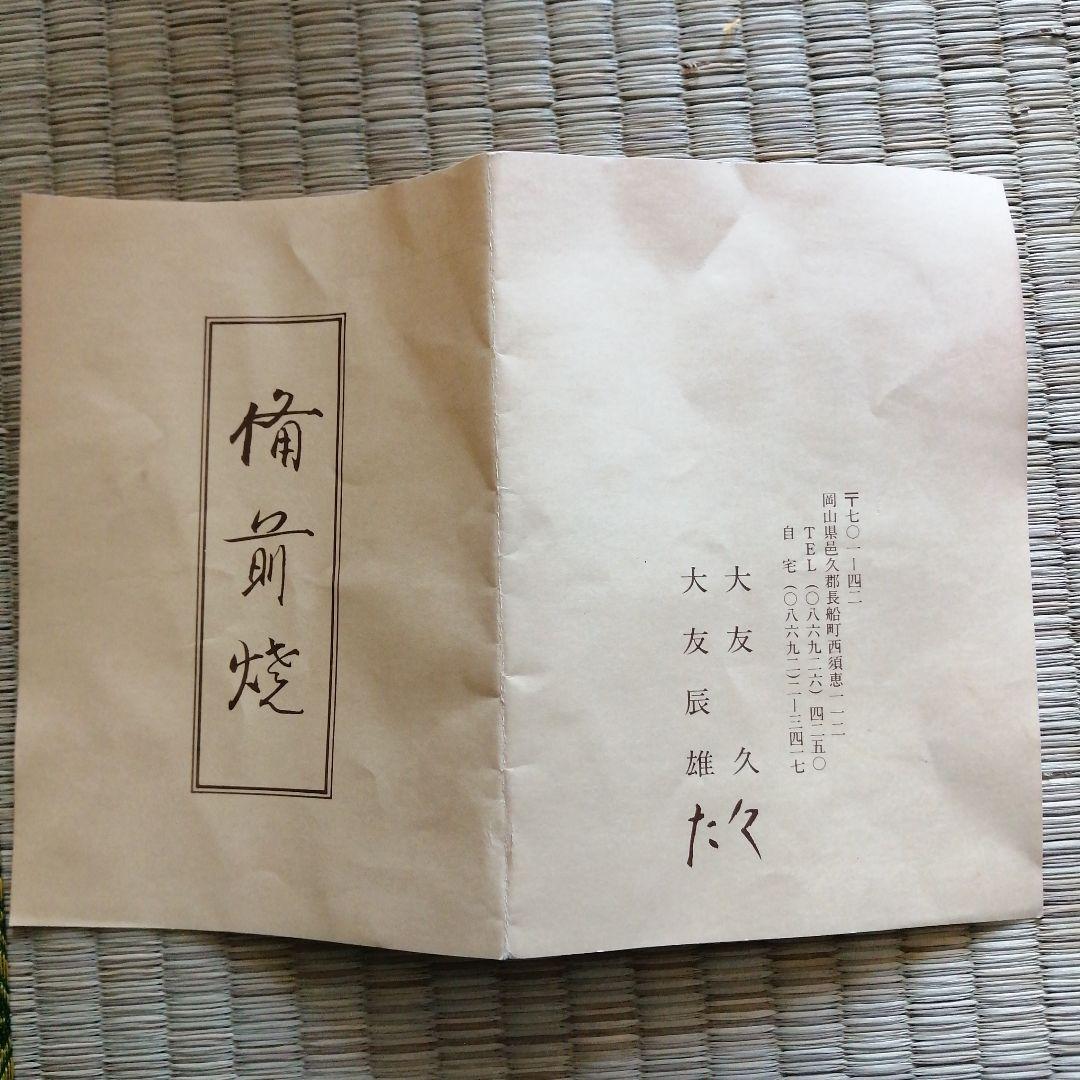 備前焼
〒七〇一ー四二
岡山県邑久郡長船町西須恵一一二
TEL(〇八六九二六)四二五〇
自宅(〇八六九二)二ー三四一七
大友久
大友辰雄
久
た